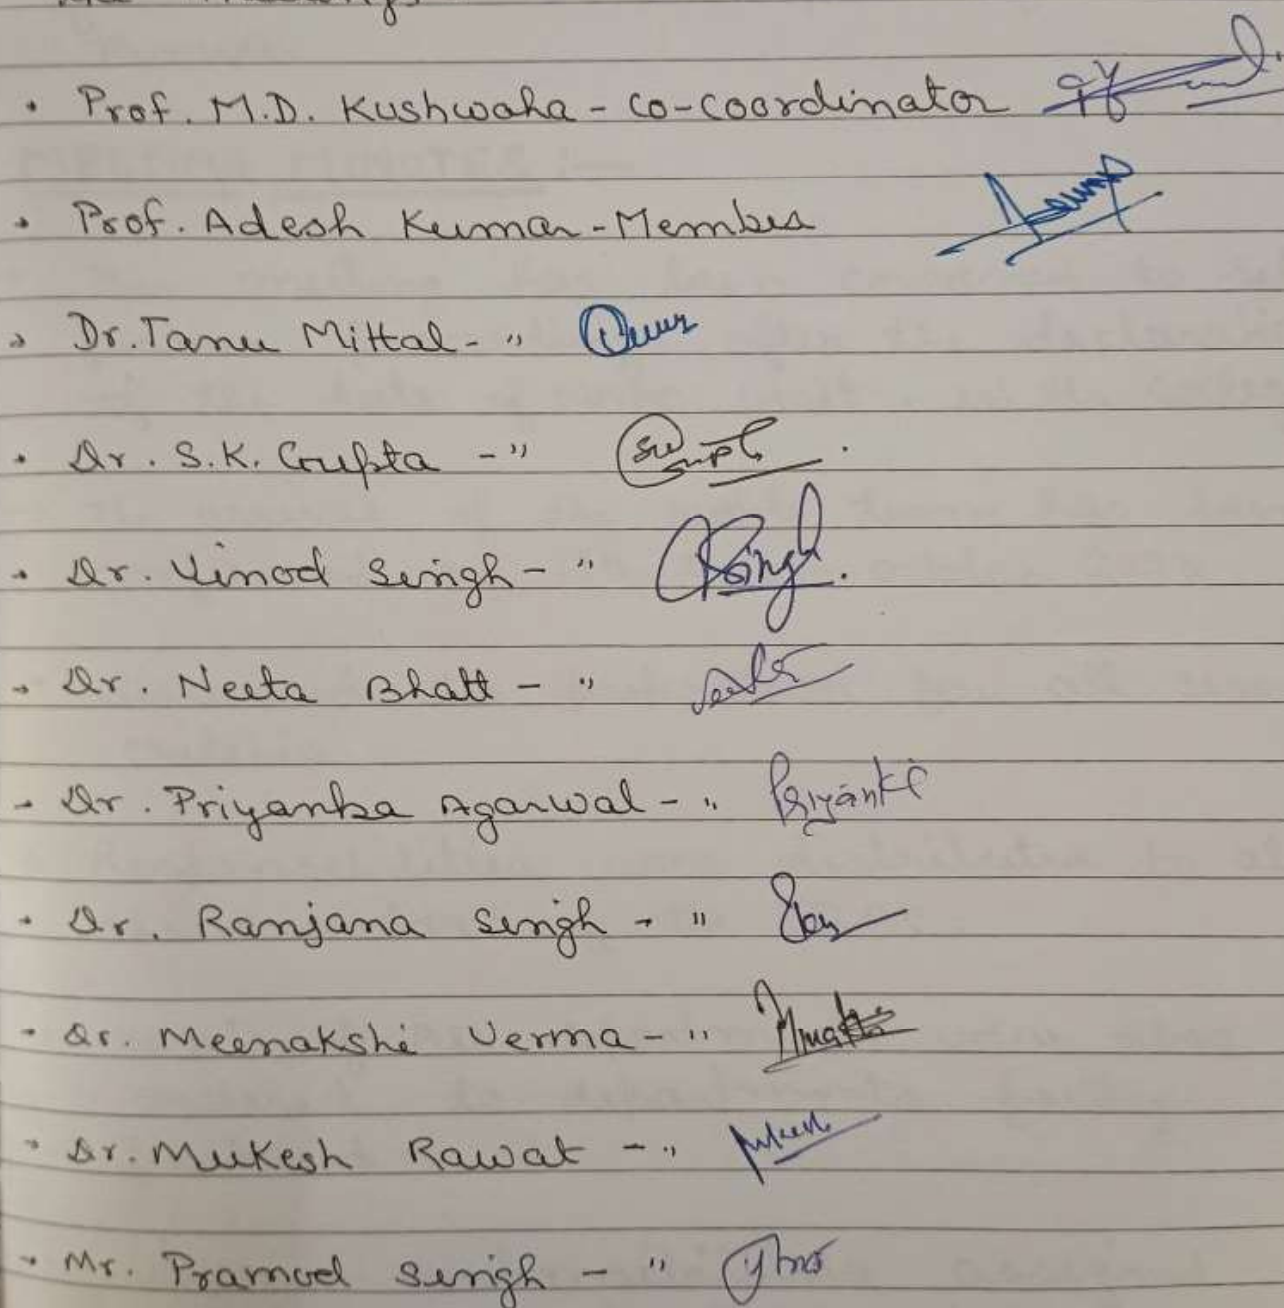 Meetings
• Prof. M.D. Kushwaha - Co-coordinator
• Prof. Adesh Kumar - Member
• Dr. Tanu Mittal - "
• Dr. S.K. Gupta - "
• Dr. Vinod Singh - " Singh.
• Dr. Neeta Bhatt - "
- Dr. Priyanka Agarwal - " Priyanka
• Dr. Ranjana Singh - "
• Dr. Meenakshi Verma - "
• Dr. Mukesh Rawat - "
• Mr. Pramod Singh - "